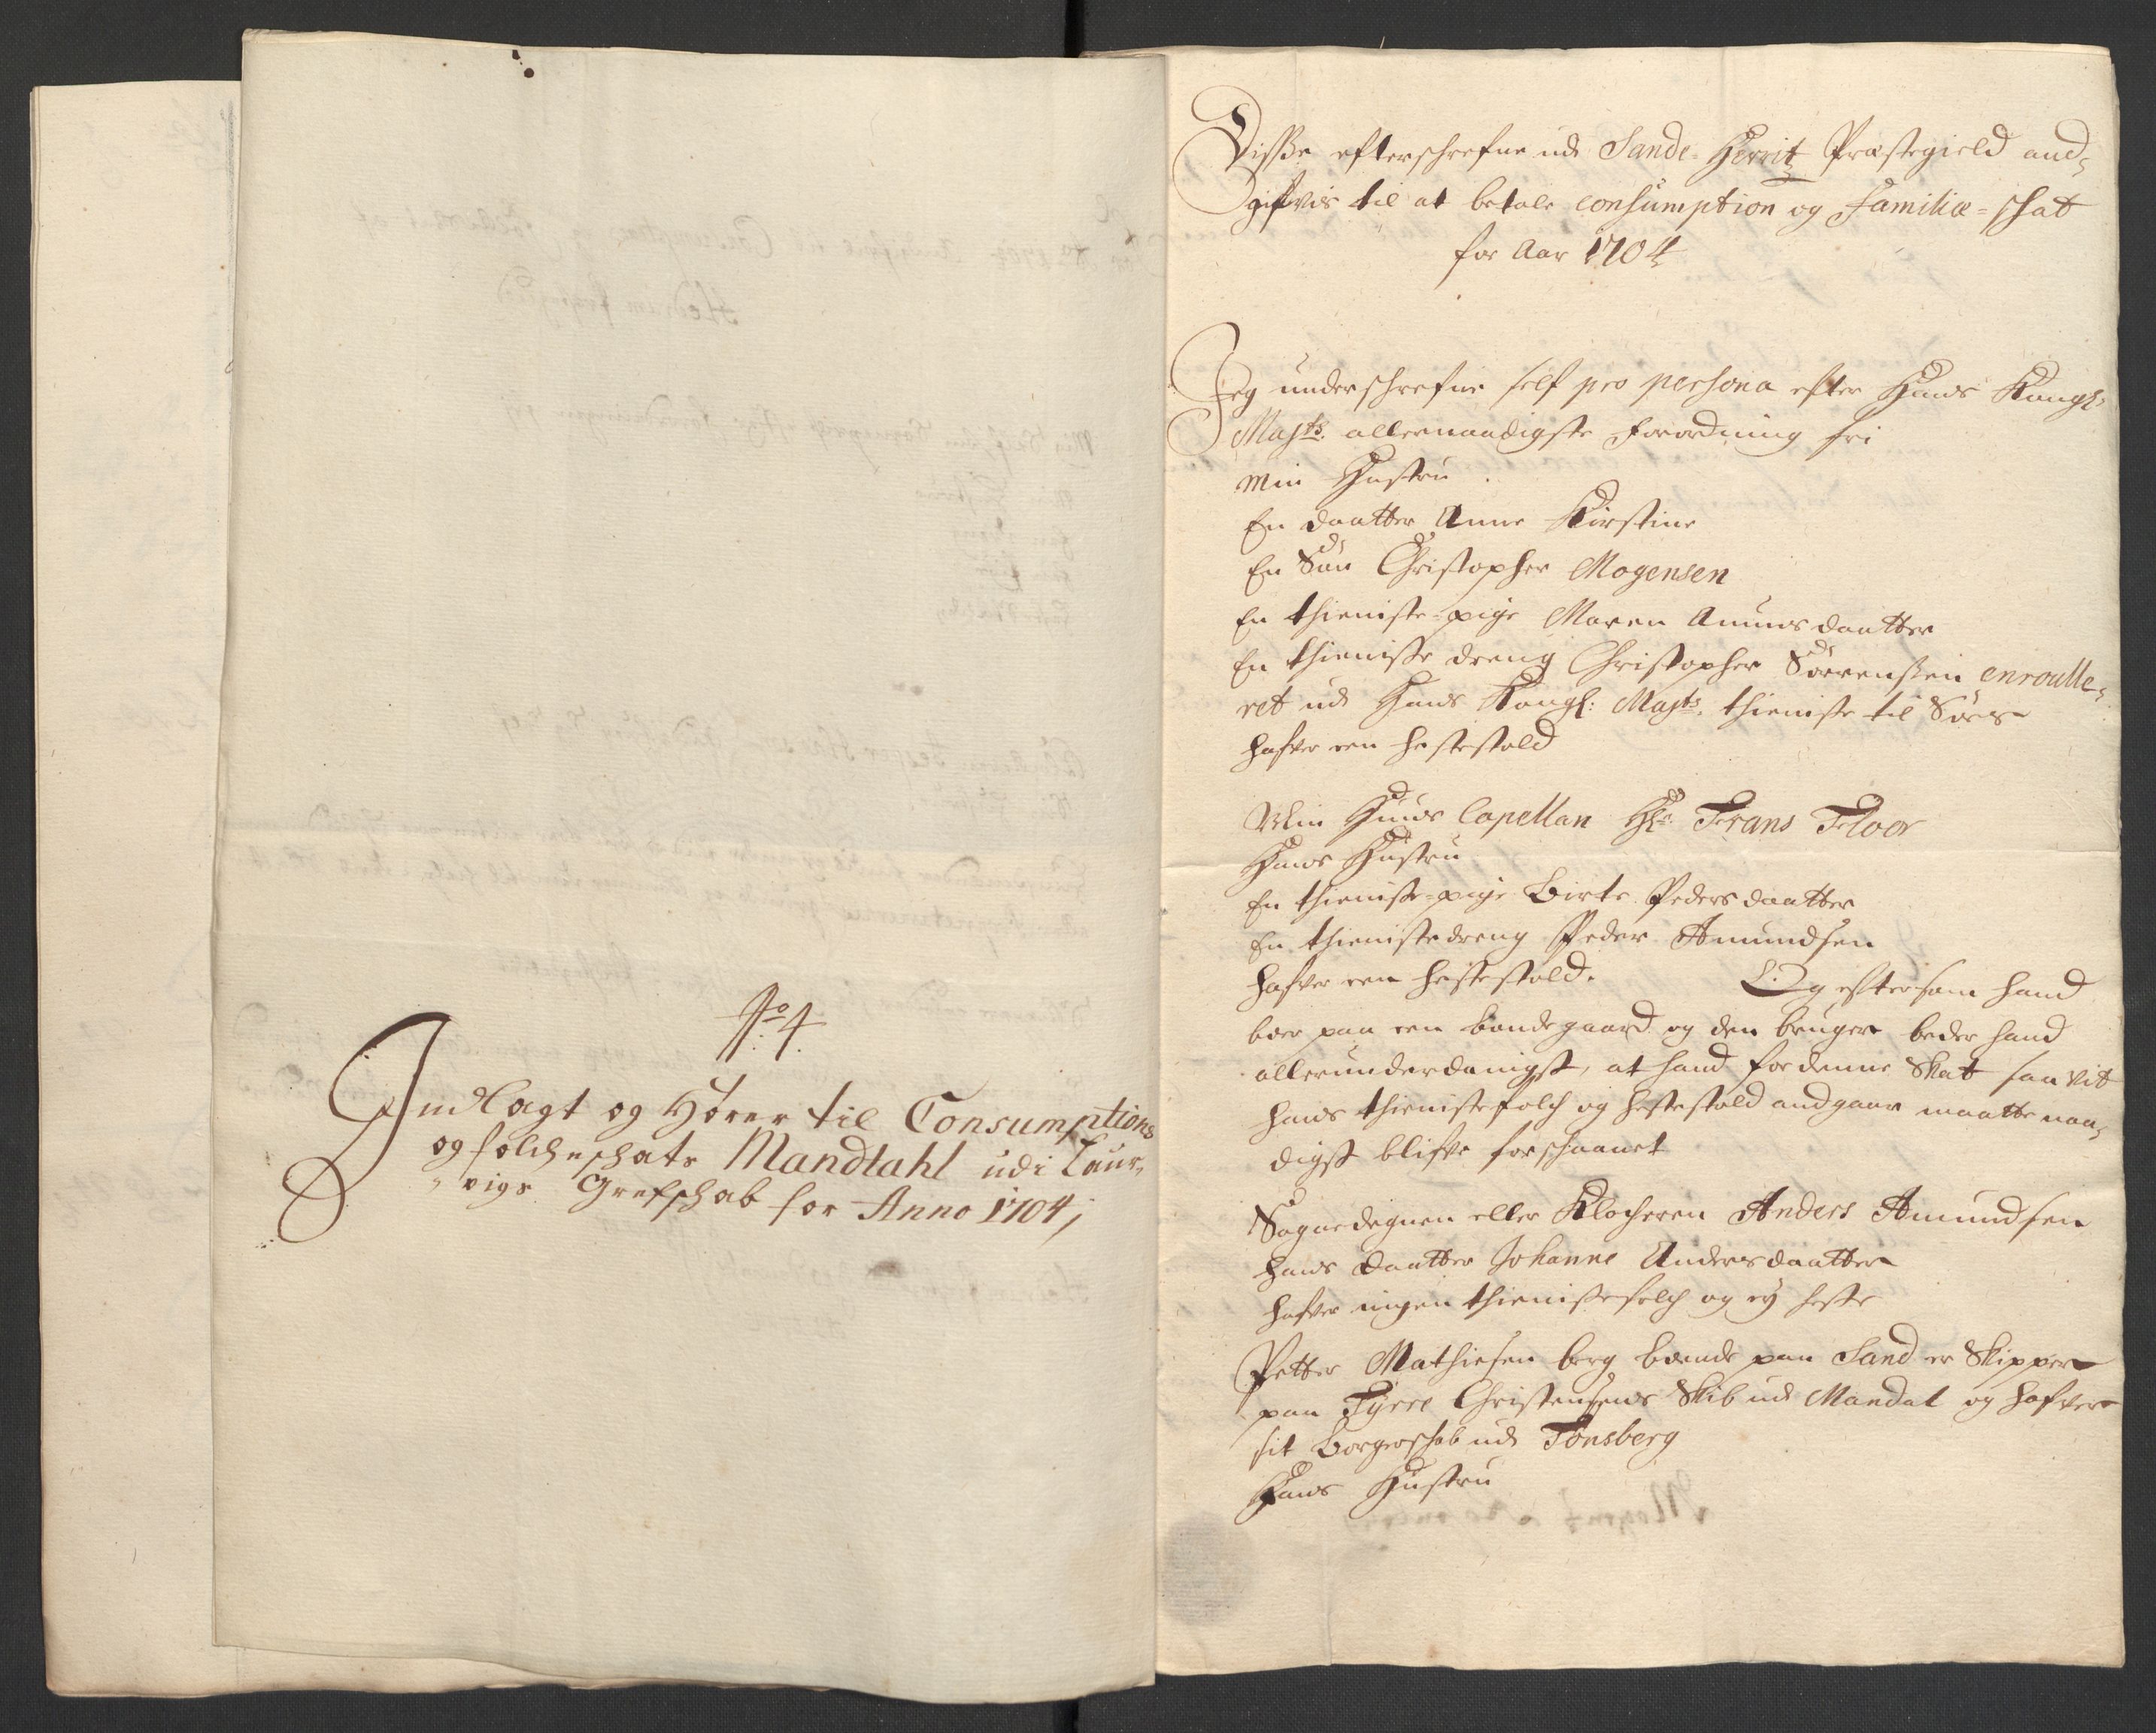 No 4
Indlagt og Hörer til Consumptions
og folcheschats Mandtahl udi Laur-
vigs Grefschab for Anno 1704
Disse efterschrefne udi Sande Herrits Præstegield and-
gifves til at betale consumption og Familie-schat
for Aar 1704
Jeg underschrefne self pro persona efter Hans Kongl:
Majts. allernaadigste forordning fri
Min Hustru
En daatter Anne Kirstine
En Sön Christopher Mogensen
En thieniste-pige Maren Amunsdaatter
En thieniste dreng Christopher Sörrensen enroulle-
ret udi Hans Kongl: Majts. thieniste til Söes
hafver een hestestald
Min Huus Capellan Hr: Frans Floor
Hans Hustru
En thieniste-pige Birte Pedersdaatter
En thienistedreng Peder Amundsen
hafver een hestestald. Og eftersom hand
boer paa een bondegaard og den bruger beder hand
allerunderdanigst, at hand for denne Skat saa vit
hans thienistefolch og hestestald andgaar maatte naa-
digst blifve forschaanet
Sognedegnen eller Klocheren Anders Amundsen
hans daatter Johanne Andersdaatter
hafver ingen thienistefolch og ey heste
Petter Mathiesen berg boende paa Sand er Skipper
paa Fyrre Christensens Skib udi Mandal og hafver
sit Borgerschab udi Tönsberg
Hans Hustru